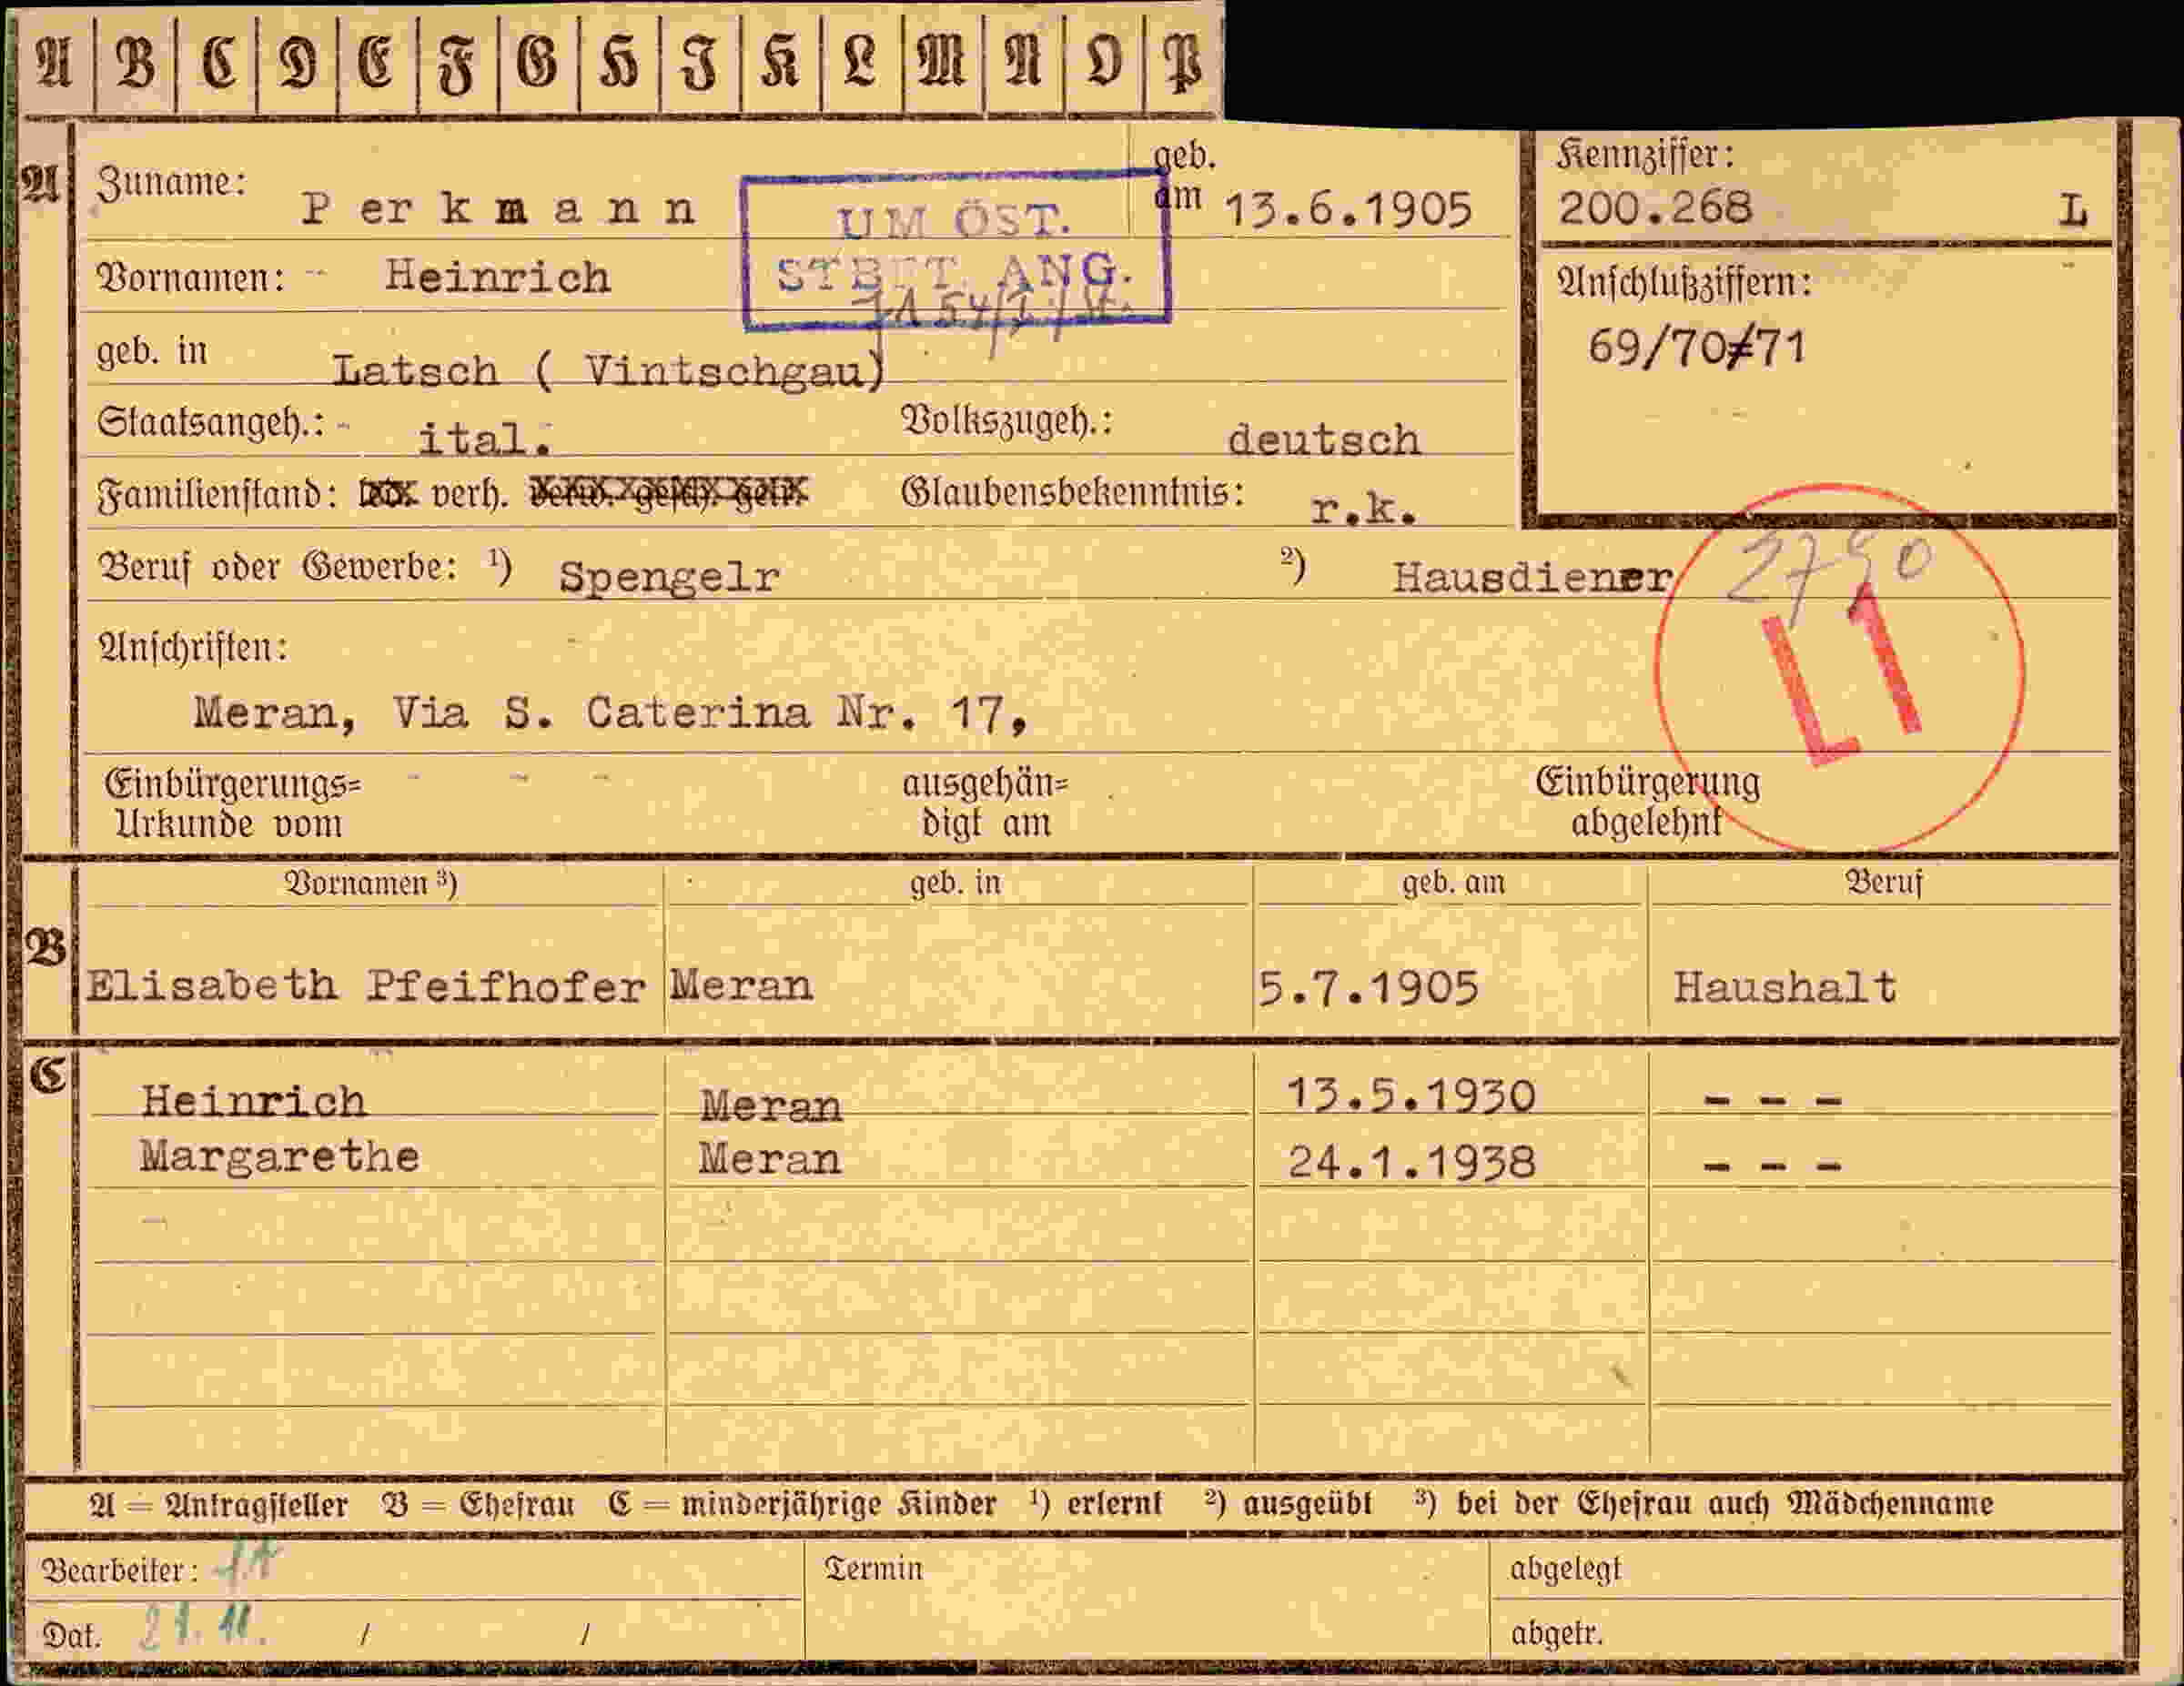 A B C D E F G H I K L M N O P
A
Zuname: Perkmann
geb. am 13.6.1905
Kennziffer:
200.268 L
UM ÖST.
ANG.
Vornamen: Heinrich
Anschlußziffern:
69/70/71
geb. in Latsch ( Vintschgau)
Staatsangeh.: ital. Volkszugeh.: deutsch
Familienstand: verh. Glaubensbekenntnis: r.k.
Beruf oder Gewerbe: 1) Spengelr 2) Hausdiener
L1
Anschriften:
Meran, Via S. Caterina Nr. 17,
Einbürgerungs= ausgehän= Einbürgerung
Urkunde vom digt am abgelehnt
Vornamen 3) geb. in geb. am Beruf
B
Elisabeth Pfeifhofer Meran 5.7.1905 Haushalt
C
Heinrich Meran 13.5.1930 - - -
Margarethe Meran 24.1.1938 - - -
A = Antragsteller B = Ehefrau C = minderjährige Kinder 1) erlernt 2) ausgeübt 3) bei der Ehefrau auch Mädchenname
Bearbeiter: Termin abgelegt
Dat. 21.11. / / abgetr.